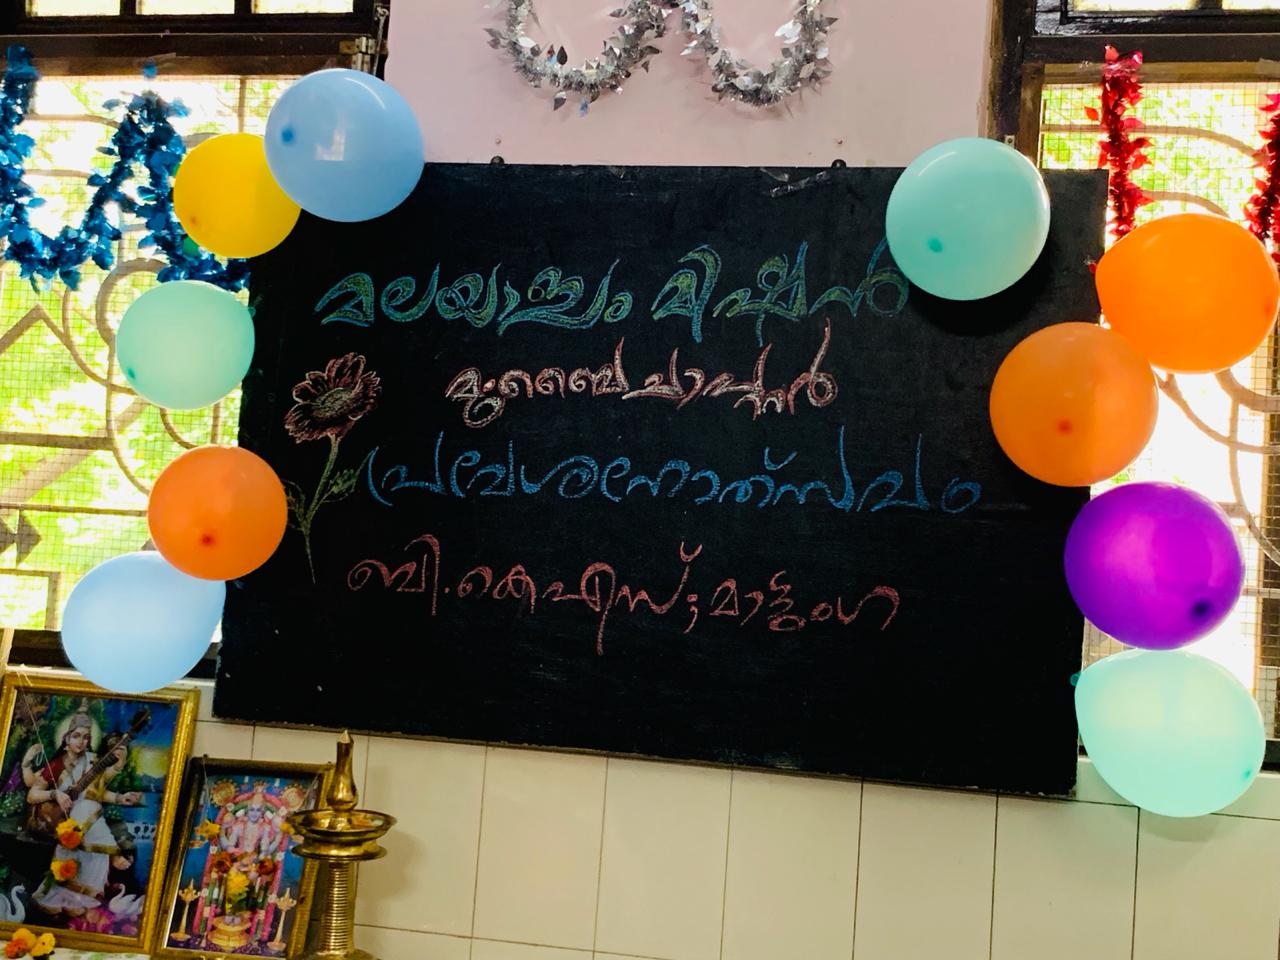 മലയാളം മിഷൻ
മുംബൈ ചാപ്റ്റർ
പ്രവേശനോത്സവം
ബി.കെഎസ്; മാട്ടുംഗ